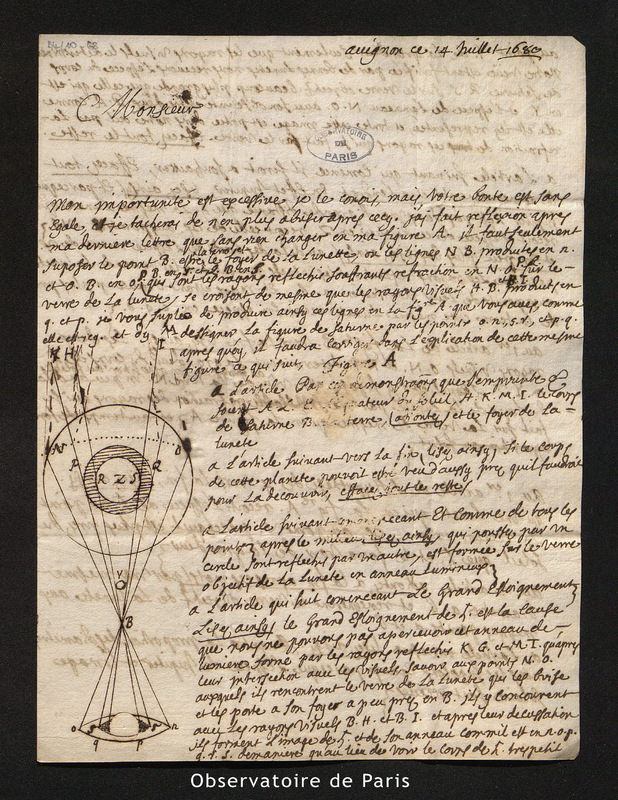 avignon ce 14 Juillet 1680
Monsieur
OBSERVATOIRE
DE
PARIS
Mon importunité est excessive je le connois, mais votre bonté est sans
egale, et je tacheray de n'en plus abuser apres cecy. j'ay fait reflexion apres
ma derniere lettre que sans rien changer en ma figure A. il faut seulement
suposer le point B. estre le foyer de la Lunete, ou les lignes N B. produites en n.
et O. B. en o. qui sont les rayons reflechis souffrants refraction en N. O. sur le
verre de la Lunete, se croisent de mesme que les rayons visuels H. B. produits en
q. et p. je vous suplie de produire ainsy ces lignes en la figre A que vous aves, comme
elle est icy. et d'y designer la figure de saturne par les points o. n., s. r., et p. q.
apres quoy, il faudra corriger dans l'explication de cette mesme
figure A qui suit. Figure A
a L'article Par demonstraons que j'emprunte &
soient A L. E. du soleil, H. K. M. I. le corps
de saturne B. la terre, (adjoutes) et le foyer de la
lunete
a L'article suivant vers la fin, lisez ainsy, si le corps
de cette planete pouvoit estre veu d'aussy pres qu'il faudroit
pour la decouvrir, effacez tout le reste
a L'article suivant commencant Et comme de tous les
points, apres le milieu lisez ainsy qui pousses par un
cercle sont reflechis par un autre, est formée sur le verre
objectif de la Lunete en anneau Lumineux
a L'article qui suit commencant Le Grand Esloignement
Lisez ainsy le grand Esloignement de ♄. est la cause
que nous ne pouvons pas apercevoir cet anneau de
lumiere formé par les rayons reflechis K. G. et M. I. qu'apres
leur intersection avec les visuels savoir aux points N. O.
auxquels ils rencontrent le verre de la Lunete qui les brise
et les porte a son foyer a peu pres en B. ils y concourent
avec les rayons visuels B. H. et B. I. et apres leur decussation
ils forment l'image de ♄. et de son anneau comme il est en n. o. p.
q. r. s. de maniere qu'au lieu de voir le corps de ♄. tres petit
K H I M
N O
P Q
R Z S
V
B
o s r n
q p
Observatoire de Paris